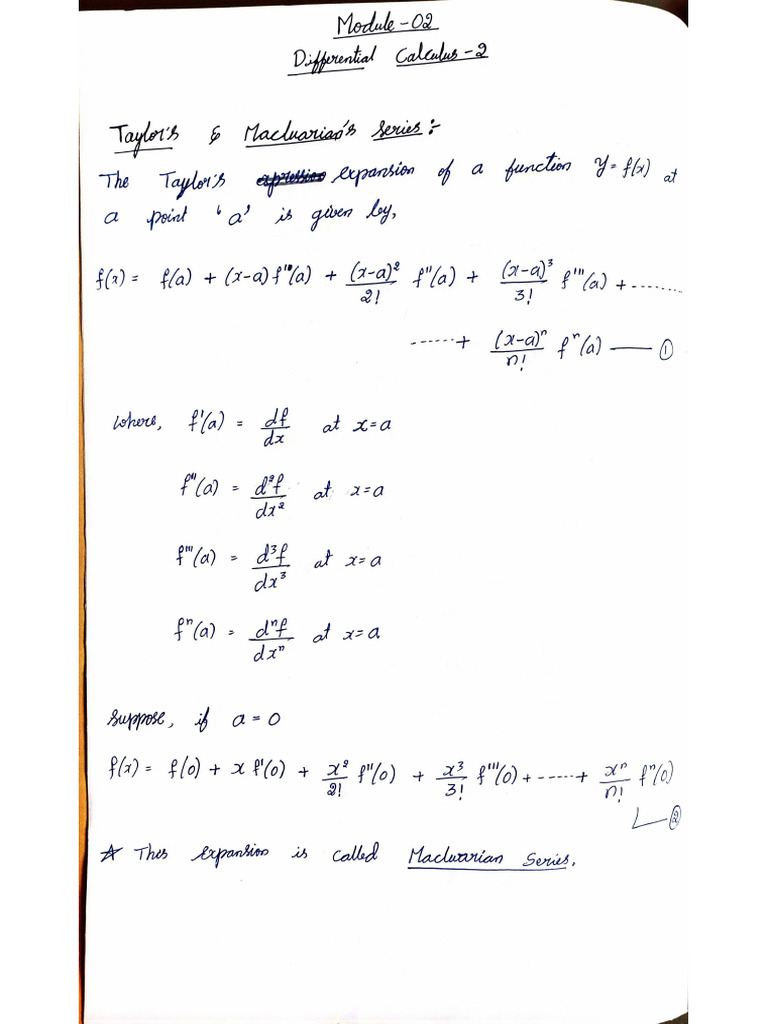 Module-02
Differential Calculus-2
Taylor's & Macluarian's series:-
The Taylor's expression expansion of a function y=f(x) at
a point 'a' is given by,
f(x) = f(a) + (x-a)f'(a) + (x-a)²/2! f''(a) + (x-a)³/3! f'''(a) + ........
......+ (x-a)ⁿ/n! fⁿ(a) —— ①
where, f'(a) = df/dx at x=a
f''(a) = d²f/dx² at x=a
f'''(a) = d³f/dx³ at x=a
fⁿ(a) = dⁿf/dxⁿ at x=a
suppose, if a=0
f(x) = f(0) + x f'(0) + x²/2! f''(0) + x³/3! f'''(0) + ......+ xⁿ/n! fⁿ(0)
②
☆ Thes expansion is called Macluarian Series.